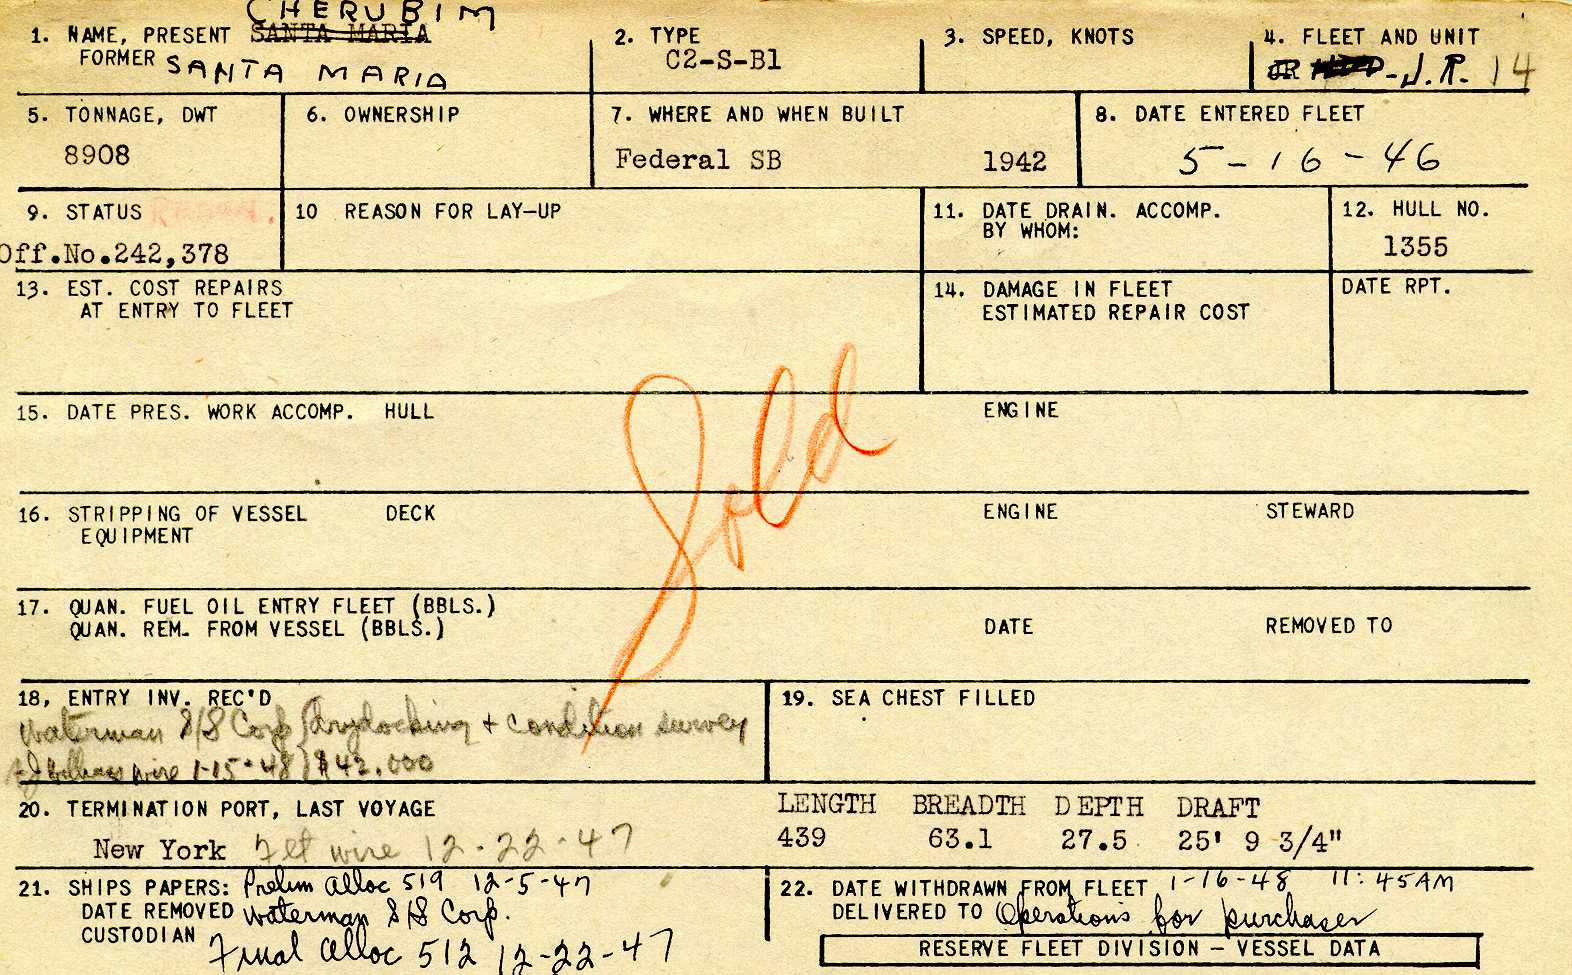 CHERUBIM
1. NAME, PRESENT SANTA MARIA
FORMER SANTA MARIA
2. TYPE
C2-S-B1
3. SPEED, KNOTS
4. FLEET AND UNIT
JR -J.R. 14
5. TONNAGE, DWT
8908
6. OWNERSHIP
7. WHERE AND WHEN BUILT
Federal SB 1942
8. DATE ENTERED FLEET
5-16-46
9. STATUS
Off.No.242,378
10 REASON FOR LAY-UP
11. DATE DRAIN. ACCOMP.
BY WHOM:
12. HULL NO.
1355
13. EST. COST REPAIRS
AT ENTRY TO FLEET
14. DAMAGE IN FLEET
ESTIMATED REPAIR COST
DATE RPT.
Sold
15. DATE PRES. WORK ACCOMP. HULL ENGINE
16. STRIPPING OF VESSEL DECK ENGINE STEWARD
EQUIPMENT
17. QUAN. FUEL OIL ENTRY FLEET (BBLS.)
QUAN. REM. FROM VESSEL (BBLS.) DATE REMOVED TO
18, ENTRY INV. REC'D
Waterman S/S Corp drydocking + condition survey
wire 1-15-48 $42.000
19. SEA CHEST FILLED
20. TERMINATION PORT, LAST VOYAGE
New York wire 12-22-47
LENGTH BREADTH DEPTH DRAFT
439 63.1 27.5 25' 9 3/4"
21. SHIPS PAPERS: Prelim Alloc 519 12-5-47
DATE REMOVED Waterman S/S Corp.
CUSTODIAN Final Alloc 512 12-22-47
22. DATE WITHDRAWN FROM FLEET 1-16-48 11:45AM
DELIVERED TO Operations for purchaser
RESERVE FLEET DIVISION - VESSEL DATA